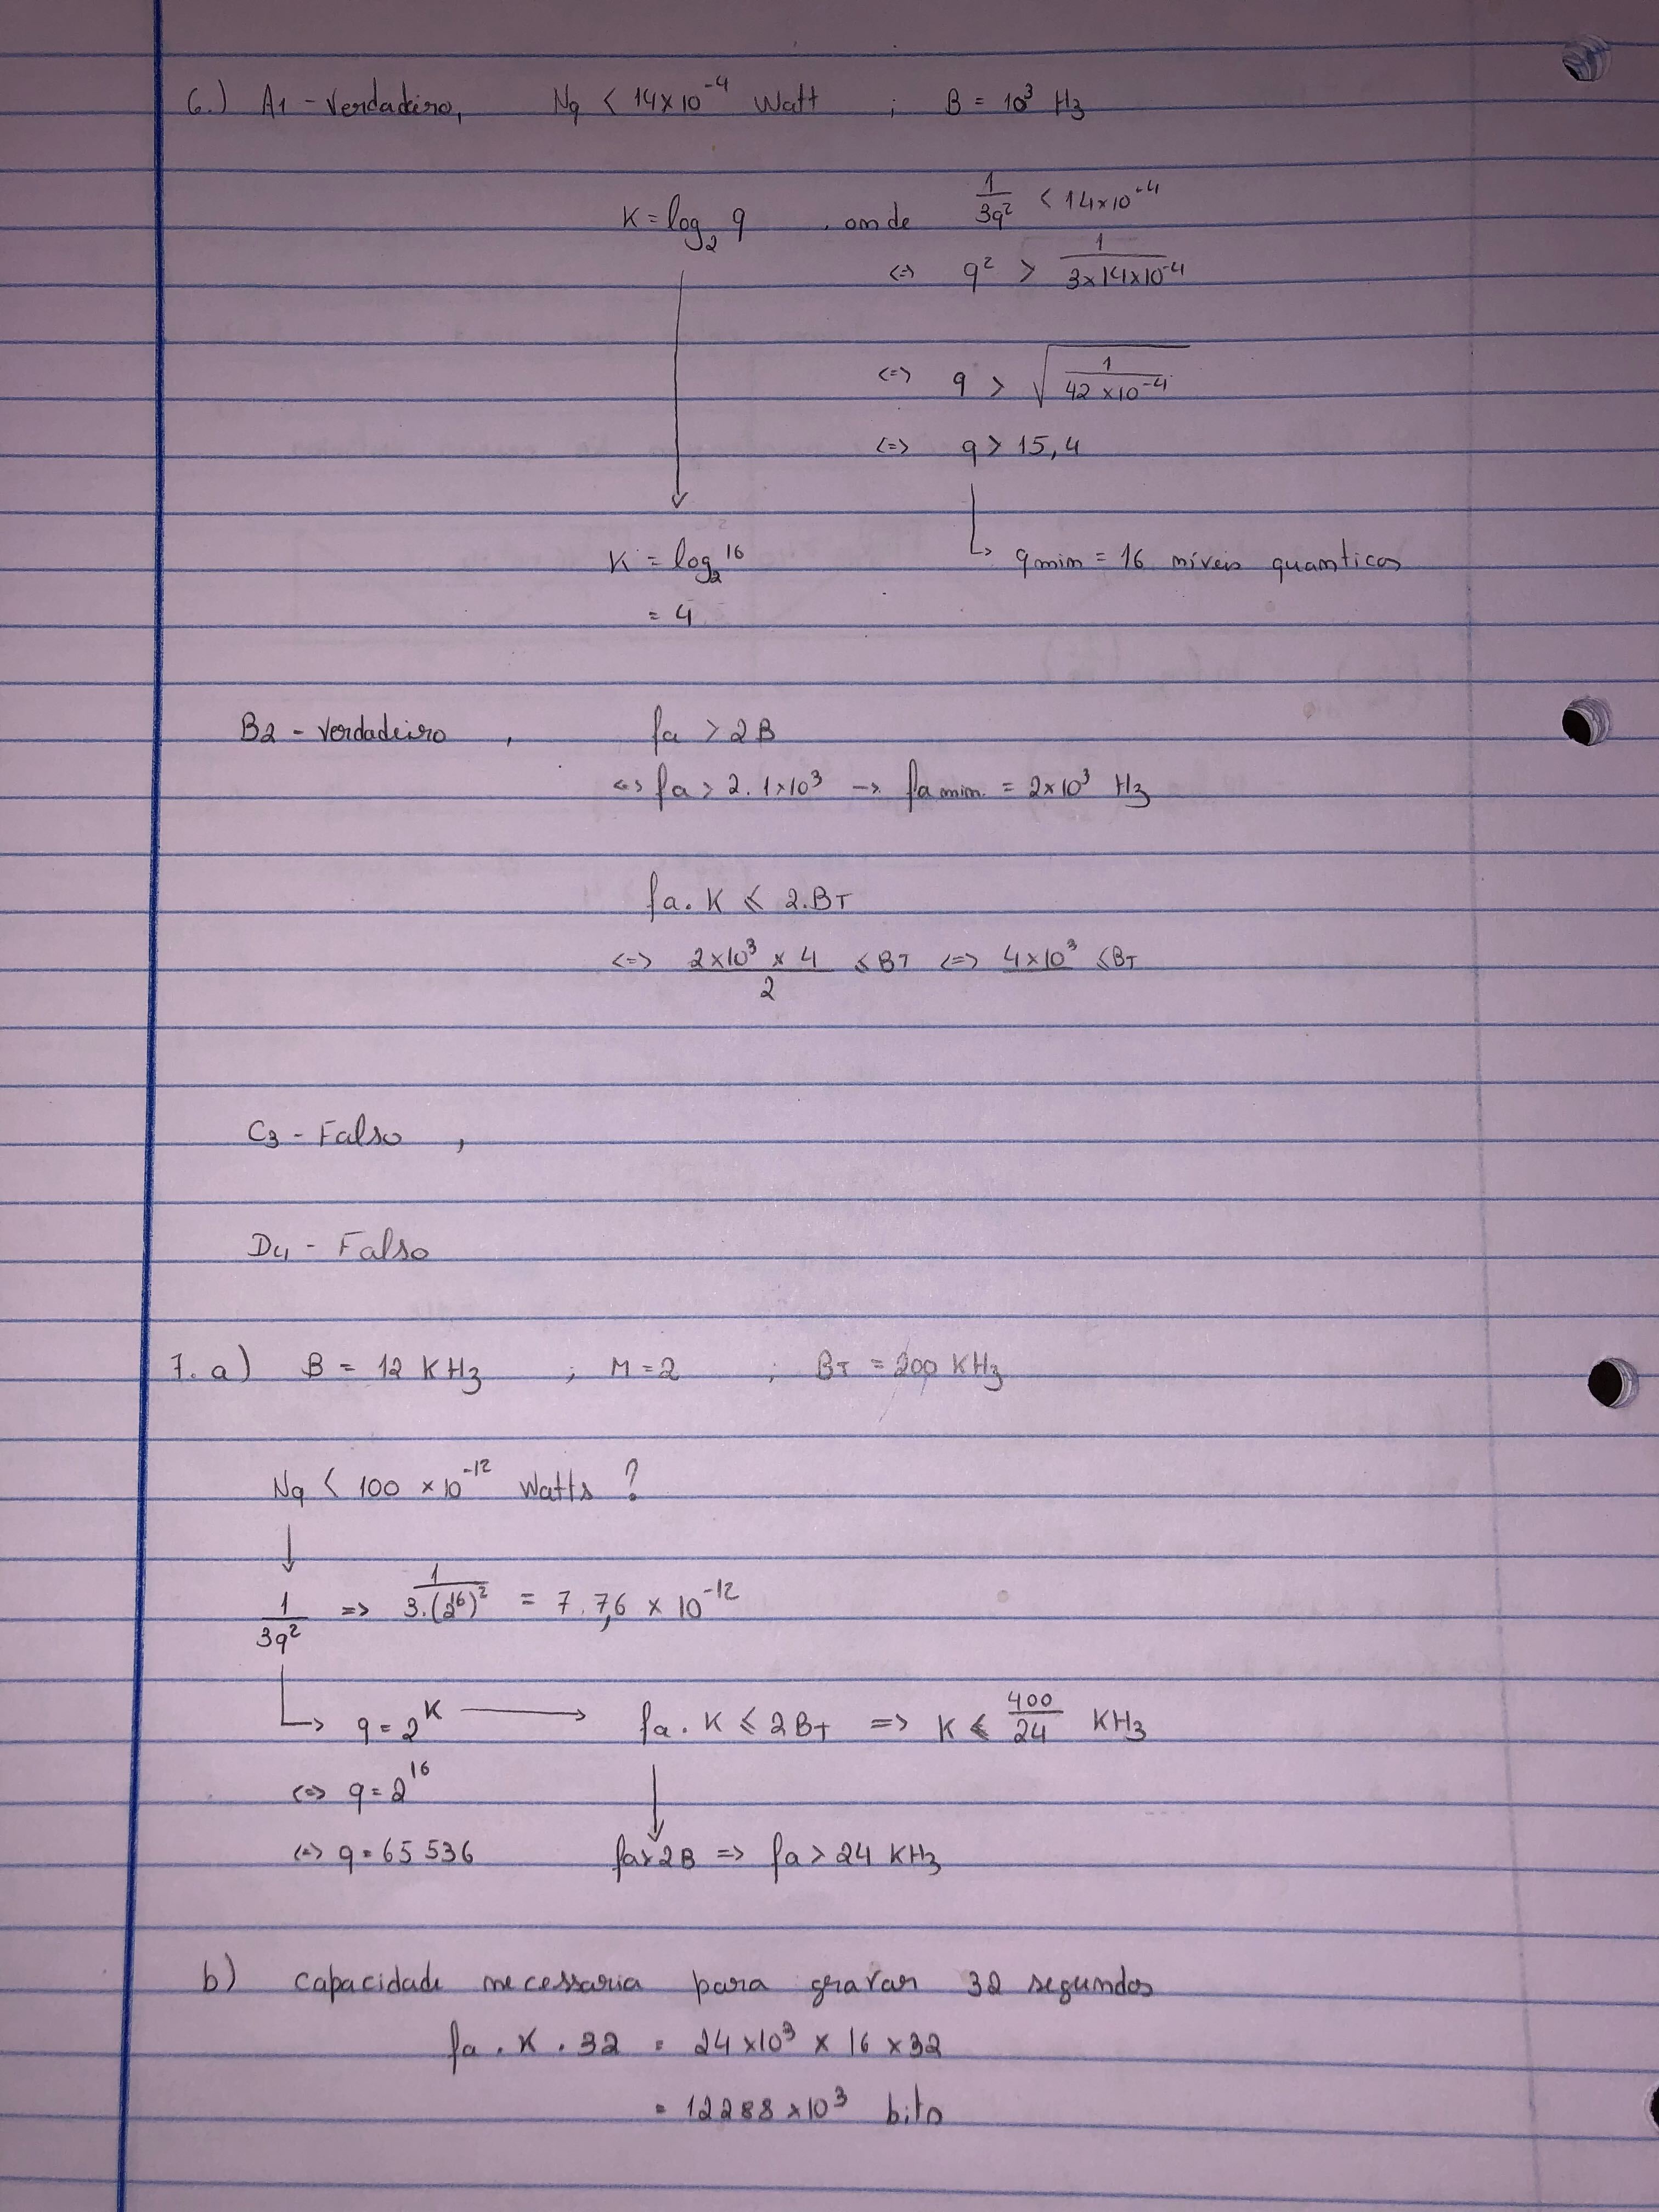 6.) A1 - Verdadeiro, Nq < 14x10^-4 Watt ; B = 10^3 Hz
K = log_2 q , onde 1/3q^2 < 14x10^-4
<=> q^2 > 1/3x14x10^-4
<=> q > √(1/42x10^-4)
<=> q > 15,4
K = log_2 16 ↳ qmin = 16 níveis quanticos
= 4
B2 - Verdadeiro , fa > 2B
<=> fa > 2.1x10^3 → fa min. = 2x10^3 Hz
fa . K ≤ 2.BT
<=> 2x10^3 x 4/2 ≤ BT <=> 4x10^3 ≤ BT
C3 - Falso ,
D4 - Falso
7. a) B = 12 KHz ; M = 2 ; BT = 200 KHz
Nq < 100 x 10^-12 Watts ?
↓
1/3q^2 => 1/3.(2^16)^2 = 7.7,6 x 10^-12
↳ q = 2^K → fa . K ≤ 2BT => K ≤ 400/24 KHz
<=> q = 2^16
<=> q = 65 536 fa > 2B => fa > 24 KHz
b) capacidade necessaria para gravar 32 segundos
fa . K . 32 = 24 x10^3 x 16 x 32
= 12288 x10^3 bits